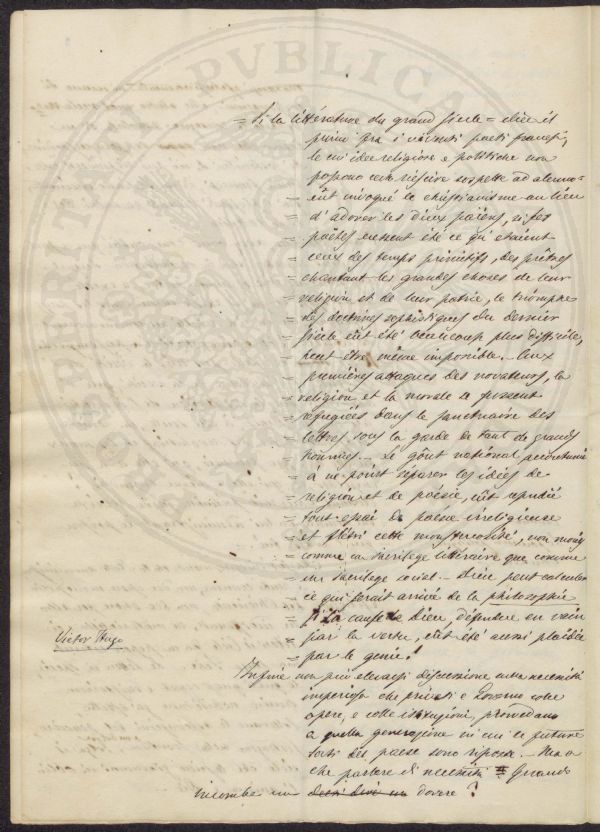 = Si la littérature du grand siècle = dice il
primo fra i viventi poeti francesi,
le cui idee religiose e politiche non
possono certo riescire sospette ad alcuno =
= eût invoqué le christianisme au lieu
= d'adorer les dieux païens, si ses
= poètes eussent été ce qu'etaient
= ceux des temps primitifs, des prêtres
= chantant les grandes choses de leur
= religion et de leur patrie, le triomphe
= des doctrines sophistiques du dernier
= siècle eût été beaucoup plus difficile,
= peut être même impossible. Aux
= premières attaques des novateurs, la
= religion et la morale se fussent
= refugiées dans le sanctuaire des
= lettres sous la garde de tant de grands
= hommes. Le goût national accoutumé
= à ne point séparer les idées de
= religion et de poésie, eût repudié
= tout essai de poésie irreligieuse
= et flétri cette monstruosité, non moins
= comme un sacrilege littéraire que comme
= un sacrilege social. Dieu peut calculer
= ce qui serait arrivé de la philosophie
= si la cause de Dieu, défendue en vain
= par la vertu, eût été aussi plaidée
= par le genie!
Victor Hugo
Infine non può elevarsi discussione sulla necessità
imperiosa che privati e Governo colle
opere, e colle istituzioni, provvedano
a quella generazione in cui le future
sorti del paese sono riposte. Ma a
che parlare di necessità = Quando
incombe un dovere?